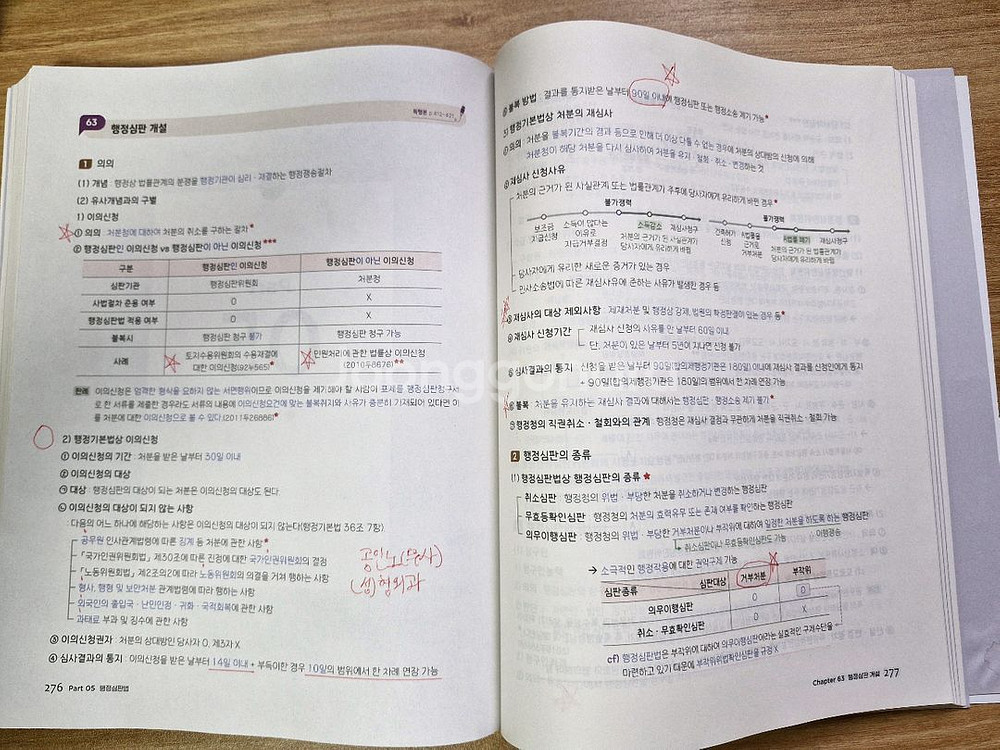 63 행정심판 개설
1 의의
(1) 개념 : 행정상 법률관계의 분쟁을 행정기관이 심리 · 재결하는 행정쟁송절차
(2) 유사개념과의 구별
1) 이의신청
① 의의 : 처분청에 대하여 처분의 취소를 구하는 절차*
② 행정심판인 이의신청 vs 행정심판이 아닌 이의신청***
구분 행정심판인 이의신청 행정심판이 아닌 이의신청
심판기관 행정심판위원회 처분청
사법절차 준용 여부 O X
행정심판법 적용 여부 O X
불복시 행정심판 청구 불가 행정심판 청구 가능
사례 토지수용위원회의 수용재결에 민원처리에 관한 법률상 이의신청
대한 이의신청(92누565)* (2010두8676)**
판례 이의신청은 엄격한 형식을 요하지 않는 서면행위이므로 이의신청을 제기해야 할 사람이 표제를 행정심판청구서
로 한 서류를 제출한 경우라도 서류의 내용에 이의신청요건에 맞는 불복취지와 사유가 충분히 기재되어 있다면 이
를 처분에 대한 이의신청으로 볼 수 있다.(2011두26886)*
2) 행정기본법상 이의신청
① 이의신청의 기간 : 처분을 받은 날부터 30일 이내
② 이의신청의 대상
㉠ 대상 : 행정심판의 대상이 되는 처분은 이의신청의 대상도 된다.
㉡ 이의신청의 대상이 되지 않는 사항
: 다음의 어느 하나에 해당하는 사항은 이의신청의 대상이 되지 않는다(행정기본법 36조 7항).
공무원 인사관계법령에 따른 징계 등 처분에 관한 사항*
「국가인권위원회법」 제30조에 따른 진정에 대한 국가인권위원회의 결정
「노동위원회법」 제2조의2에 따라 노동위원회의 의결을 거쳐 행하는 사항
형사, 행형 및 보안처분 관계법령에 따라 행하는 사항
외국인의 출입국 · 난민인정 · 귀화 · 국적회복에 관한 사항
과태료 부과 및 징수에 관한 사항
공인노(무사)
(성)형외과
③ 이의신청권자 : 처분의 상대방인 당사자 O, 제3자 X
④ 심사결과의 통지 : 이의신청을 받은 날부터 14일 이내 + 부득이한 경우 10일의 범위에서 한 차례 연장 가능
276 Part 05 행정심판법
불복 방법 : 결과를 통지받은 날부터 90일 이내에 행정심판 또는 행정소송 제기 가능*
3) 행정기본법상 처분의 재심사
① 의의 : 처분을 불복기간의 경과 등으로 인해 더 이상 다툴 수 없는 경우에 처분의 상대방의 신청에 의해
처분청이 해당 처분을 다시 심사하여 처분을 유지 · 철회 · 취소 · 변경하는 것
② 재심사 신청사유
처분의 근거가 된 사실관계 또는 법률관계가 추후에 당사자에게 유리하게 바뀐 경우*
불가쟁력 불가쟁력
보조금 지급신청 소득이 많다는 이유로 지급거부결정 소득감소 재심사청구
처분의 근거가 된 사실관계가 당사자에게 유리하게 바뀜
건축허가 신청 A법률을 근거로 거부처분 A법률 폐기 재심사청구
처분의 근거가 된 법률관계가 당사자에게 유리하게 바뀜
당사자에게 유리한 새로운 증거가 있는 경우
민사소송법에 따른 재심사유에 준하는 사유가 발생한 경우 등
③ 재심사의 대상 제외사항 : 제재처분 및 행정상 강제, 법원의 확정판결이 있는 경우 등*
④ 재심사 신청기간 재심사 신청의 사유를 안 날부터 60일 이내
단, 처분이 있은 날부터 5년이 지나면 신청 불가
⑤ 심사결과의 통지 : 신청을 받은 날부터 90일(합의제행정기관은 180일) 이내에 재심사 결과를 신청인에게 통지
+ 90일(합의제행정기관은 180일)의 범위에서 한 차례 연장 가능
⑥ 불복 : 처분을 유지하는 재심사 결과에 대해서는 행정심판 · 행정소송 제기 불가*
⑦ 행정청의 직권취소 · 철회와의 관계 : 행정청은 재심사 결정과 무관하게 처분을 직권취소 · 철회 가능
2 행정심판의 종류
(1) 행정심판법상 행정심판의 종류 ★
취소심판 : 행정청의 위법 · 부당한 처분을 취소하거나 변경하는 행정심판
무효등확인심판 : 행정청의 처분의 효력유무 또는 존재 여부를 확인하는 행정심판
의무이행심판 : 행정청의 위법 · 부당한 거부처분이나 부작위에 대하여 일정한 처분을 하도록 하는 행정심판
취소심판이나 무효등확인심판도 가능 이행쟁송
→ 소극적인 행정작용에 대한 권익구제 가능
심판종류 심판대상 거부처분 부작위
의무이행심판 O O
취소 · 무효확인심판 O X
cf) 행정심판법은 부작위에 대하여 의무이행심판이라는 실효적인 구제수단을
마련하고 있기 때문에 부작위위법확인심판을 규정 X
Chapter 63 행정심판 개설 277